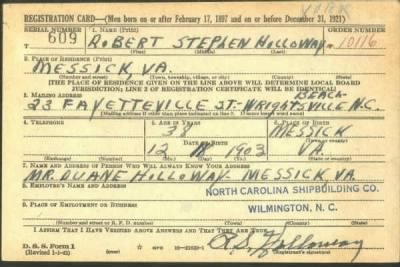 YORK
REGISTRATION CARD—(Men born on or after February 17, 1897 and on or before December 31, 1921)
SERIAL NUMBER 1. NAME (Print) ORDER NUMBER
609 ROBERT STEPHEN HOLLOWAY 10116
(First) (Middle) (Last)
2. PLACE OF RESIDENCE (Print)
MESSICK, VA.
(Number and street) (Town, township, village, or city) (County) (State)
[THE PLACE OF RESIDENCE GIVEN ON THE LINE ABOVE WILL DETERMINE LOCAL BOARD
JURISDICTION; LINE 2 OF REGISTRATION CERTIFICATE WILL BE IDENTICAL]
3. MAILING ADDRESS BEACH
23 FAYETTEVILLE ST-WRIGHTSVILLE N.C.
[Mailing address if other than place indicated on line 2. If same insert word same]
4. TELEPHONE 5. AGE IN YEARS 6. PLACE OF BIRTH
38 MESSICK
DATE OF BIRTH (Town or county)
12 1903 VA.
(Exchange) (Number) (Mo.) (Day) (Yr.) (State or country)
7. NAME AND ADDRESS OF PERSON WHO WILL ALWAYS KNOW YOUR ADDRESS
MR. DUANE HOLLOWAY-MESSICK VA.
8. EMPLOYER'S NAME AND ADDRESS
NORTH CAROLINA SHIPBUILDING CO.
9. PLACE OF EMPLOYMENT OR BUSINESS
WILMINGTON, N. C.
(Number and street or R. F. D. number) (Town) (County) (State)
I AFFIRM THAT I HAVE VERIFIED ABOVE ANSWERS AND THAT THEY ARE TRUE.
D. S. S. Form 1 R.S. Holloway
(Revised 1-1-42) (over) 16-21630-1 (Registrant's signature)